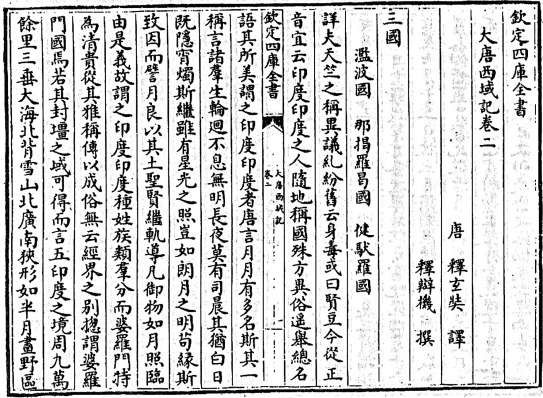 欽定四庫全書
大唐西域記卷二
唐 釋玄奘 譯
釋辯機 撰
三國
濫波國 那揭羅曷國 健馱羅國
詳夫天竺之稱異議糺紛舊云身毒或曰賢豆今從正
音宜云印度印度之人隨地稱國殊方異俗遥舉總名
語其所美謂之印度印度者唐言月月有多名斯其一
欽定四庫全書
大唐西域記
卷二
稱言諸羣生輪廻不息無明長夜莫有司晨其猶白日
既隱宵燭斯繼雖有星光之照豈如朗月之明茍緣斯
致因而譬月良以其土聖賢繼軌導凡御物如月照臨
由是義故謂之印度印度種姓族類羣分而婆羅門特
為清貴從其雅稱傳以成俗無云經界之别揔謂婆羅
門國焉若其封壃之域可得而言五印度之境周九萬
餘里三垂大海北背雪山北廣南狹形如半月畫野區